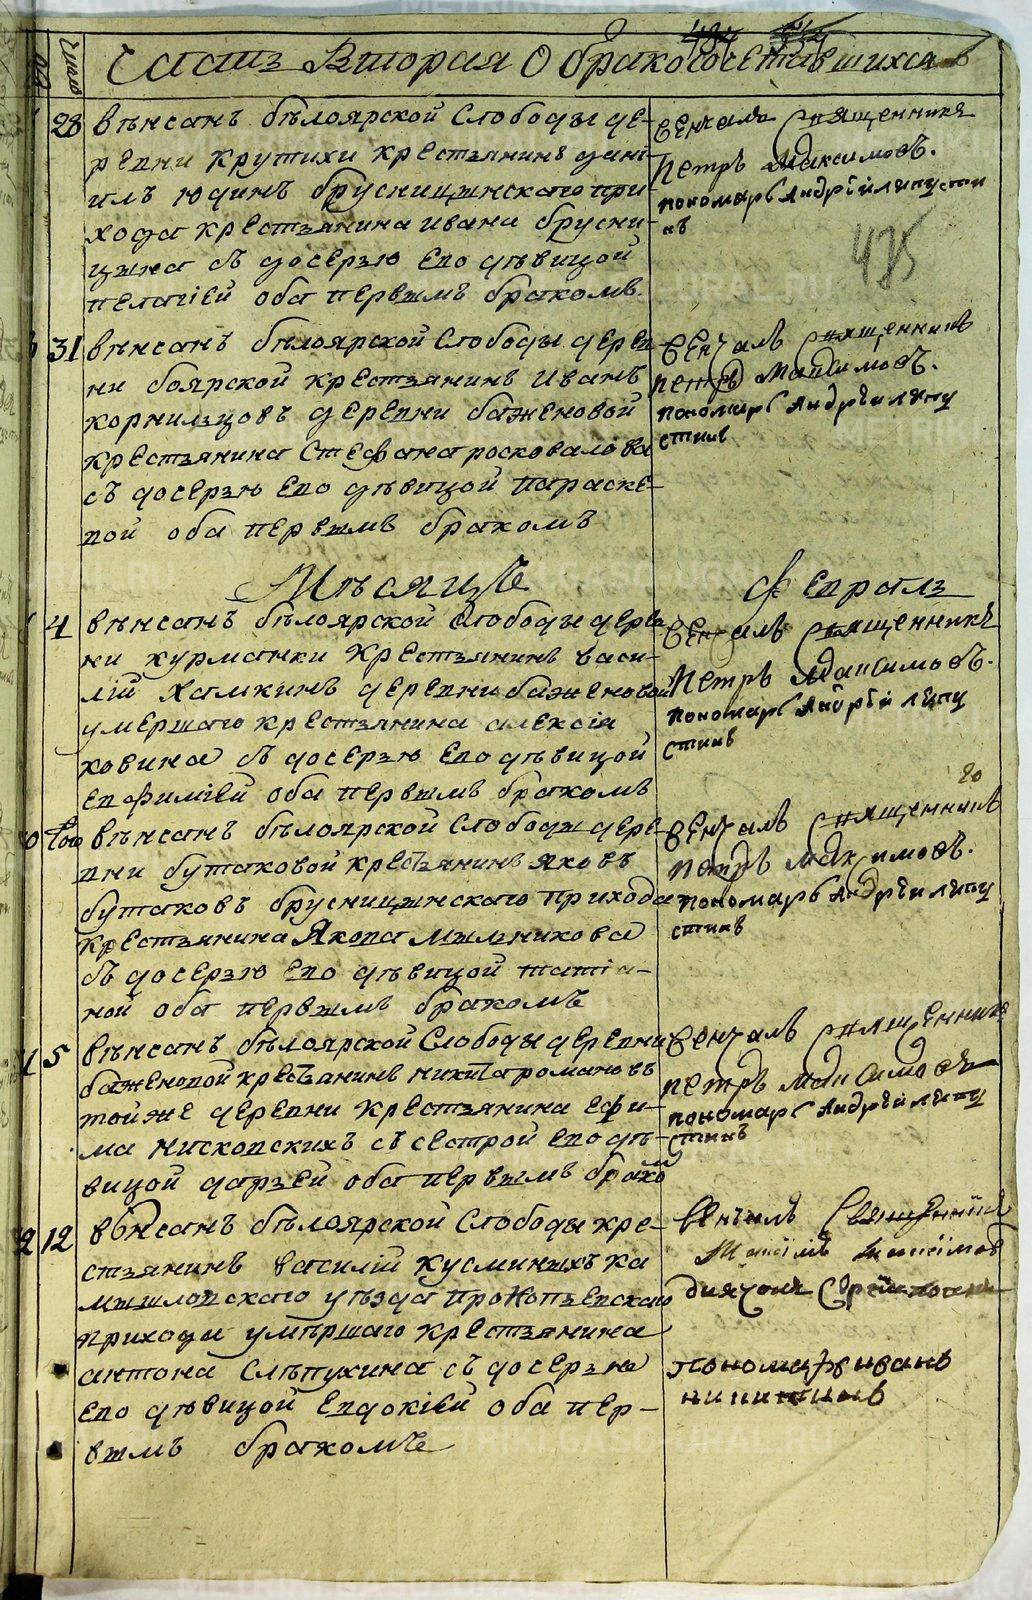 Число
Часть Вторая О бракосочетавшихся
435
28 венчанъ белоярской Слободы де-
ревни крутихи крестьянинъ дани-
илъ юдинъ брусницынского при
хода крестьянина ивана брусни-
цына съ дочерью ево девицой
пелагией оба первымъ бракомъ
венчалъ Священникъ
Петръ Максимовъ.
пономарь Андрей лапусти
нъ
31 венчанъ белоярской Слободы дерев
ни боярской крестьянинъ Иванъ
корнильцовъ деревни баженовой
крестьянина Стефана просковалова
съ дочерью ево девицой параске-
вой оба первымъ бракомъ
венчалъ Священникъ
петръ Максимовъ.
пономарь Андрей лапу
стинъ
Месяцъ Февраль
4 венчанъ белоярской Слободы дерев
ни курманки крестьянинъ васи-
лий Хамкинъ деревни баженовой
умершаго крестьянина алексия
ховина съ дочерью ево девицой
евфимией оба первымъ бракомъ
венчалъ Священникъ
Петръ Максимовъ.
пономарь Андрей лапу
стинъ
венчанъ белоярской Слободы дере-
вни бутаковой крестьянинъ яковъ
бутаковъ брусницынского прихода
крестьянина Якова Мыльникова
съ дочерью ево девицой татиа-
ной оба первымъ бракомъ
венчалъ Священникъ
петръ Максимовъ.
пономарь Андрей лапу
стинъ
5 венчанъ белоярской Слободы деревни
баженовой крестьянинъ никита романовъ
той же деревни крестьянина ефи-
ма нисковскихъ съ сестрой ево де-
вицой дарьей оба первымъ брако
венчалъ Священникъ
петръ Максимовъ
пономарь Андрей лапу
стинъ
12 венчанъ белоярской Слободы кре-
стьянинъ василий кусминыхъ ка
мышловского уезда прокопьевского
прихода умершаго крестьянина
антона Слепухина съ дочерью
ево девицой Евдокией оба пер-
вымъ бракомъ
венчалъ Священникъ
Максимъ Максимов
диячокъ
пономарь иванъ
никитинъ